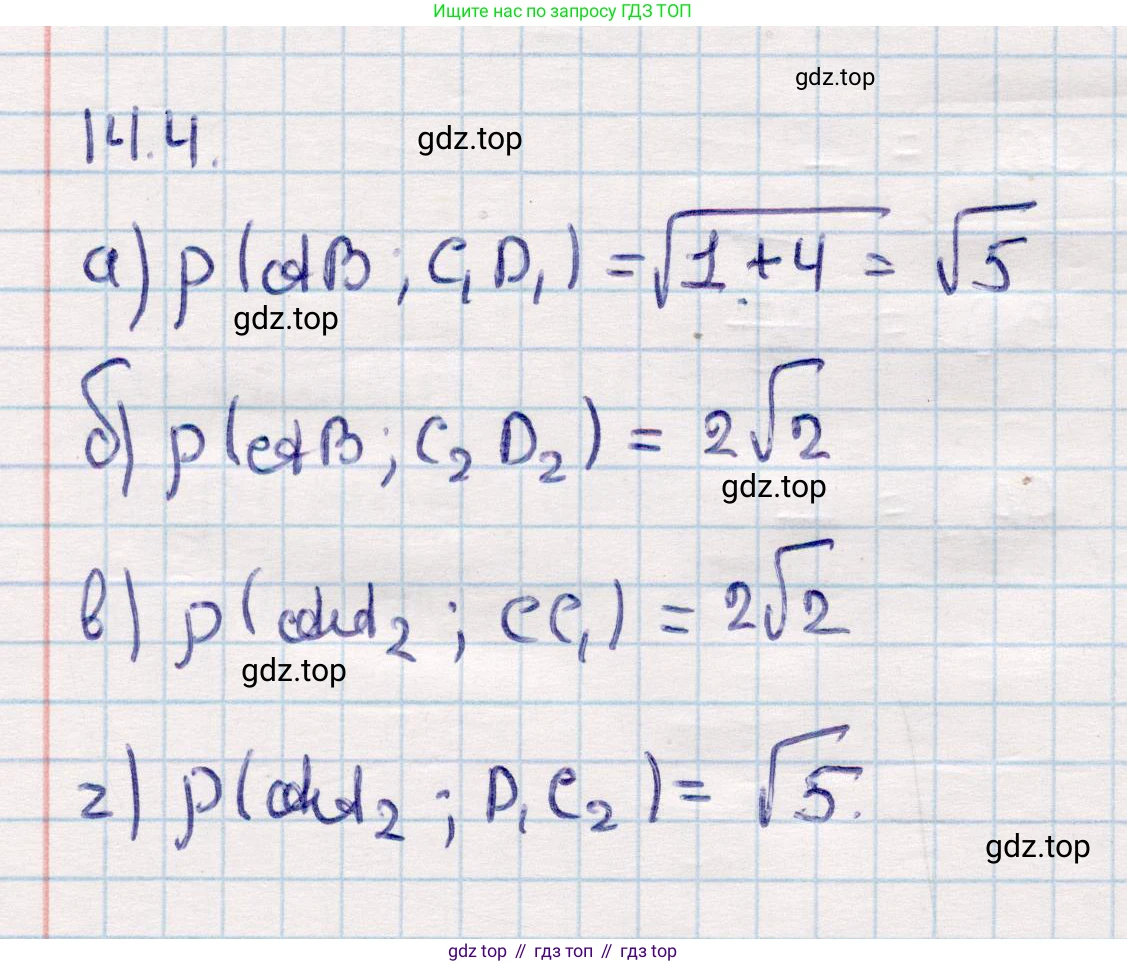 Ищите нас по запросу ГДЗ ТОП
gdz.top
14.4.
gdz.top
а) ρ(AB; C₁D₁) = √1+4 = √5
gdz.top
б) ρ(AB; C₂D₂) = 2√2
gdz.top
в) ρ(AA₂; CC₁) = 2√2
gdz.top
г) ρ(AA₂; D₁C₂) = √5.
gdz.top
gdz top // гдз топ // гдз top